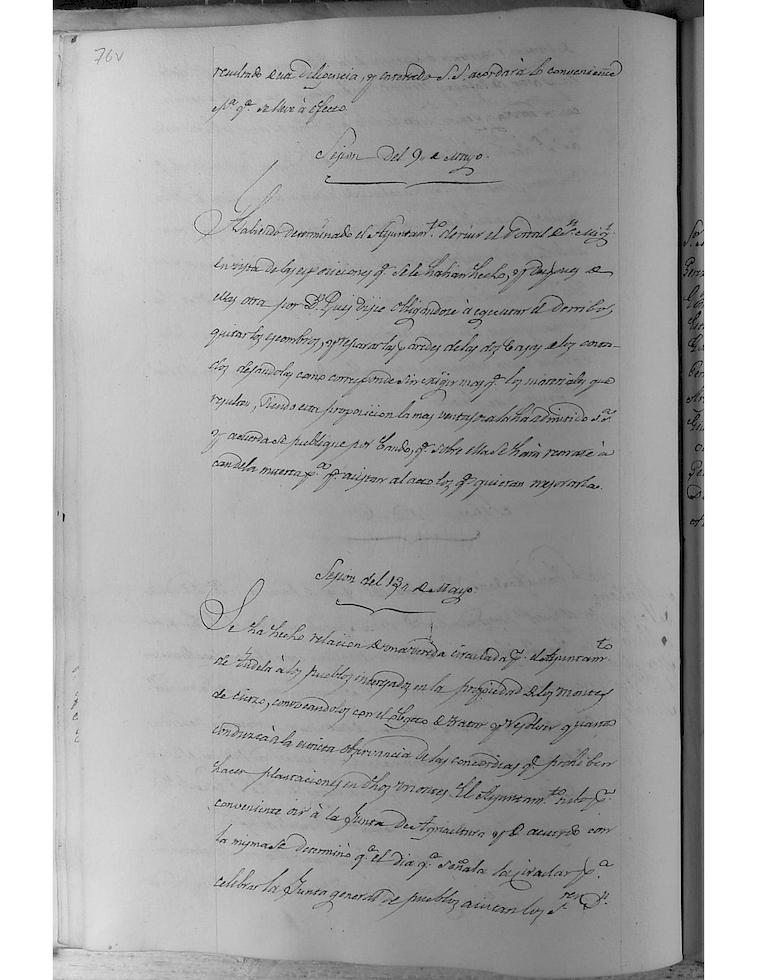 76v
resultado de la diligencia, y enterado S.S. acordará lo conveniente
pª. qe. se lleve à efecto.
Sesion del 9. de Mayo.
Habiendo determinado el Ayuntamto. derivar el Portal de Sn. Migl.
en vista de las esposiciones qe. se le habian hecho, y despues de
ellas otra por Dn. Luis obligandose à egecutar el derribo,
quitar los escombros, y reparar las paredes de las dos Casas de los costa-
dos dejandolas como corresponde sin exigir mas qe. los materiales que
resulten, siendo esta proposicion la mas ventajosa la ha admitido
y acuerda se publique por bando, qe. sobre ella se hará remate à
candela muerta pª. qe. asistan al acto los qe. quieran mejorarla.
Sesion del 13. de Mayo.
Se ha hecho relacion de una vereda circulada pr. el Ayuntamto.
de Tudela à los pueblos interesados en la propiedad de los montes
de cierzo, convocandolos con el objeto de tratar y resolver quanto
conduzca à la estricta observancia de las concordias qe. prohiben
hacer plantaciones en dhos montes. El Ayuntamto. tubo pr.
conveniente oir à la Junta de Agricultura y de acuerdo con
la misma se determinó qe. el dia qe. señala la circular pª.
celebrar la Junta general de pueblos asistan los Sres. Dn.